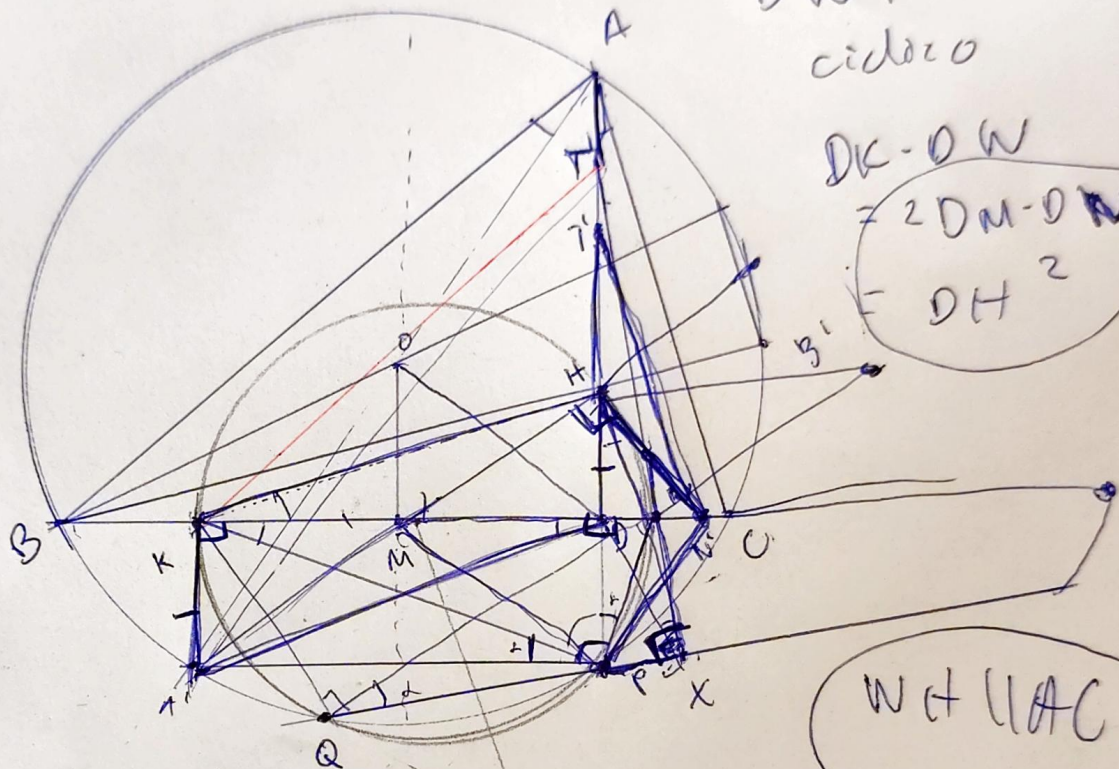 ciclico
DK · DW
= 2DM · DN
= DH²
A
T
T'
O
H
B'
B
K
M
D
N
C
A'
P
X
Q
WH || AC